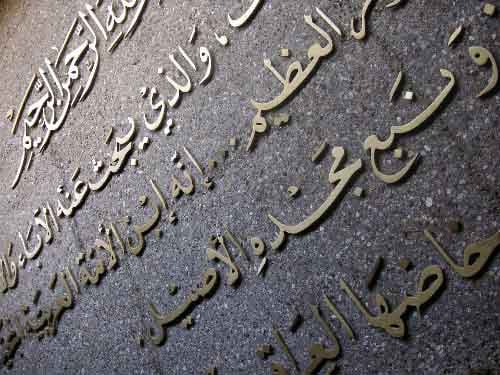 الله الرحمن الرحيم
، والذي يبحث عنه الأبناء
العظيم ... إنه إبن الأمة العربية
ونبع مجده الأصيل.